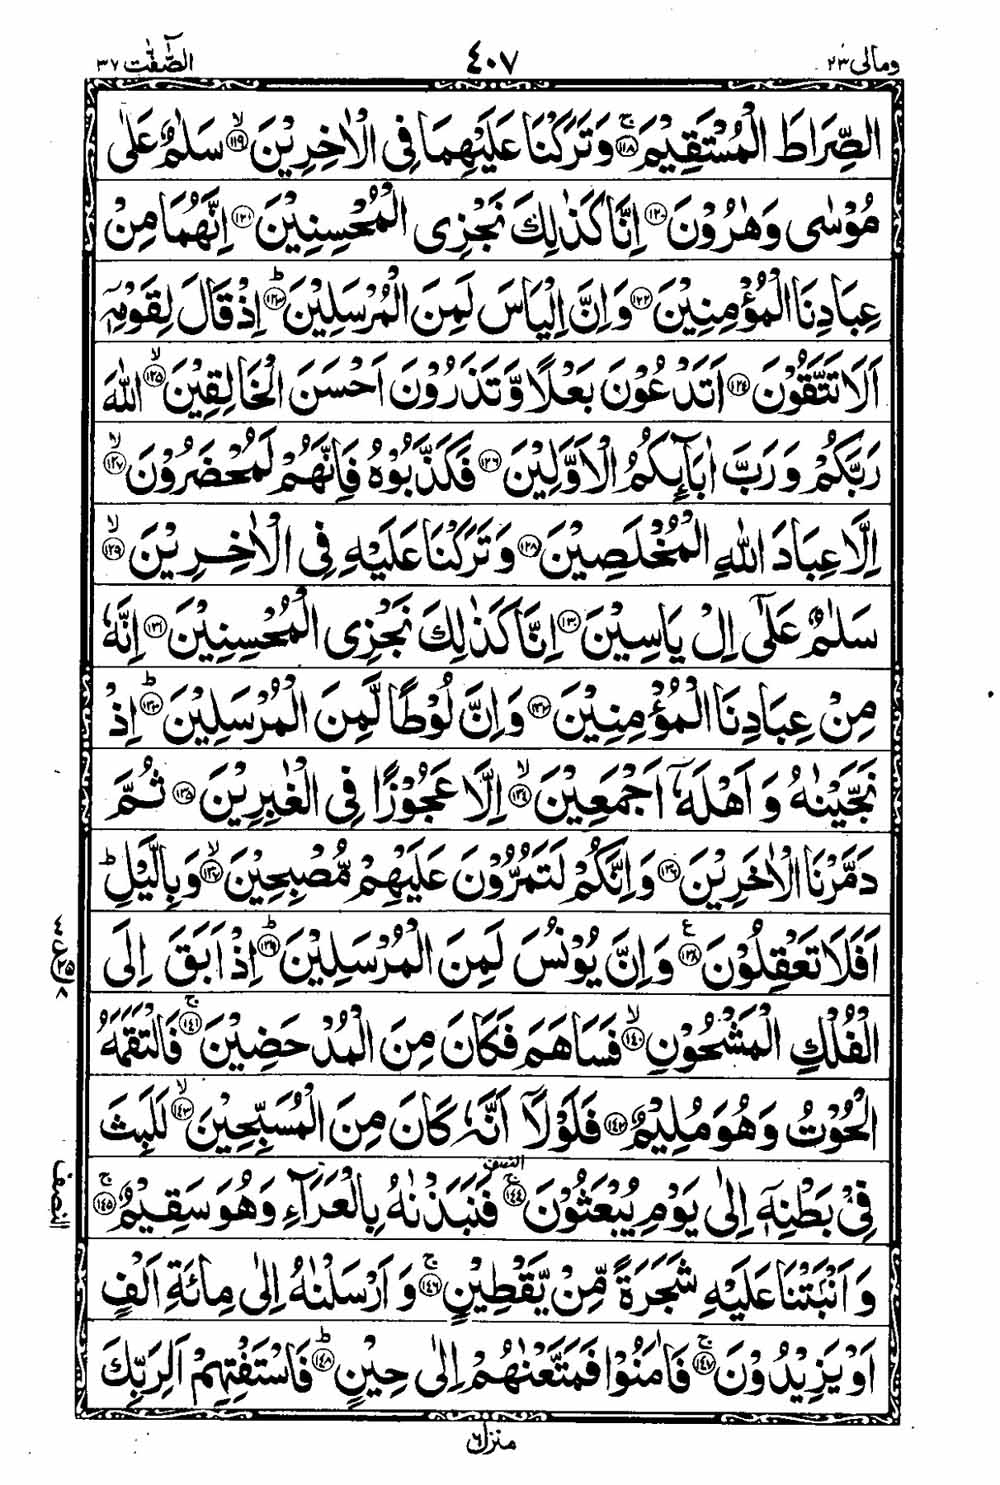 ومالی ٢٣
٤٠٧
الصّٰٓفّٰت ٣٧
الصِّرَاطَ الْمُسْتَقِيْمَ ﴿١١٨﴾ۚ وَتَرَكْنَا عَلَيْهِمَا فِى الْاٰخِرِيْنَ ﴿١١٩﴾ۙ سَلٰمٌ عَلٰى
مُوْسٰى وَهٰرُوْنَ ﴿١٢٠﴾ اِنَّا كَذٰلِكَ نَجْزِى الْمُحْسِنِيْنَ ﴿١٢١﴾ اِنَّهُمَا مِنْ
عِبَادِنَا الْمُؤْمِنِيْنَ ﴿١٢٢﴾ وَاِنَّ اِلْيَاسَ لَمِنَ الْمُرْسَلِيْنَ ﴿١٢٣﴾ؕ اِذْ قَالَ لِقَوْمِهٖٓ
اَلَا تَتَّقُوْنَ ﴿١٢٤﴾ اَتَدْعُوْنَ بَعْلًا وَّتَذَرُوْنَ اَحْسَنَ الْخَالِقِيْنَ ﴿١٢٥﴾ۙ اللّٰهَ
رَبَّكُمْ وَرَبَّ اٰبَآئِكُمُ الْاَوَّلِيْنَ ﴿١٢٦﴾ فَكَذَّبُوْهُ فَاِنَّهُمْ لَمُحْضَرُوْنَ ﴿١٢٧﴾ۙ
اِلَّا عِبَادَ اللّٰهِ الْمُخْلَصِيْنَ ﴿١٢٨﴾ وَتَرَكْنَا عَلَيْهِ فِى الْاٰخِرِيْنَ ﴿١٢٩﴾ۙ
سَلٰمٌ عَلٰٓى اِلْ يَاسِيْنَ ﴿١٣٠﴾ اِنَّا كَذٰلِكَ نَجْزِى الْمُحْسِنِيْنَ ﴿١٣١﴾ اِنَّهٗ
مِنْ عِبَادِنَا الْمُؤْمِنِيْنَ ﴿١٣٢﴾ وَاِنَّ لُوْطًا لَّمِنَ الْمُرْسَلِيْنَ ﴿١٣٣﴾ؕ اِذْ
نَجَّيْنٰهُ وَاَهْلَهٗٓ اَجْمَعِيْنَ ﴿١٣٤﴾ۙ اِلَّا عَجُوْزًا فِى الْغٰبِرِيْنَ ﴿١٣٥﴾ ثُمَّ
دَمَّرْنَا الْاٰخَرِيْنَ ﴿١٣٦﴾ وَاِنَّكُمْ لَتَمُرُّوْنَ عَلَيْهِمْ مُّصْبِحِيْنَ ﴿١٣٧﴾ۙ وَبِالَّيْلِؕ
اَفَلَا تَعْقِلُوْنَ ﴿١٣٨﴾ع وَاِنَّ يُوْنُسَ لَمِنَ الْمُرْسَلِيْنَ ﴿١٣٩﴾ؕ اِذْ اَبَقَ اِلَى
الْفُلْكِ الْمَشْحُوْنِ ﴿١٤٠﴾ۙ فَسَاهَمَ فَكَانَ مِنَ الْمُدْحَضِيْنَ ﴿١٤١﴾ۚ فَالْتَقَمَهُ
الْحُوْتُ وَهُوَ مُلِيْمٌ ﴿١٤٢﴾ فَلَوْلَآ اَنَّهٗ كَانَ مِنَ الْمُسَبِّحِيْنَ ﴿١٤٣﴾ۙ لَلَبِثَ
فِىْ بَطْنِهٖٓ اِلٰى يَوْمِ يُبْعَثُوْنَ ﴿١٤٤﴾ۚ النصف فَنَبَذْنٰهُ بِالْعَرَآءِ وَهُوَ سَقِيْمٌ ﴿١٤٥﴾ۚ
وَاَنْۢبَتْنَا عَلَيْهِ شَجَرَةً مِّنْ يَّقْطِيْنٍ ﴿١٤٦﴾ۚ وَاَرْسَلْنٰهُ اِلٰى مِائَةِ اَلْفٍ
اَوْ يَزِيْدُوْنَ ﴿١٤٧﴾ۚ فَاٰمَنُوْا فَمَتَّعْنٰهُمْ اِلٰى حِيْنٍ ﴿١٤٨﴾ؕ فَاسْتَفْتِهِمْ اَلِرَبِّكَ
النصف
منزل ٦